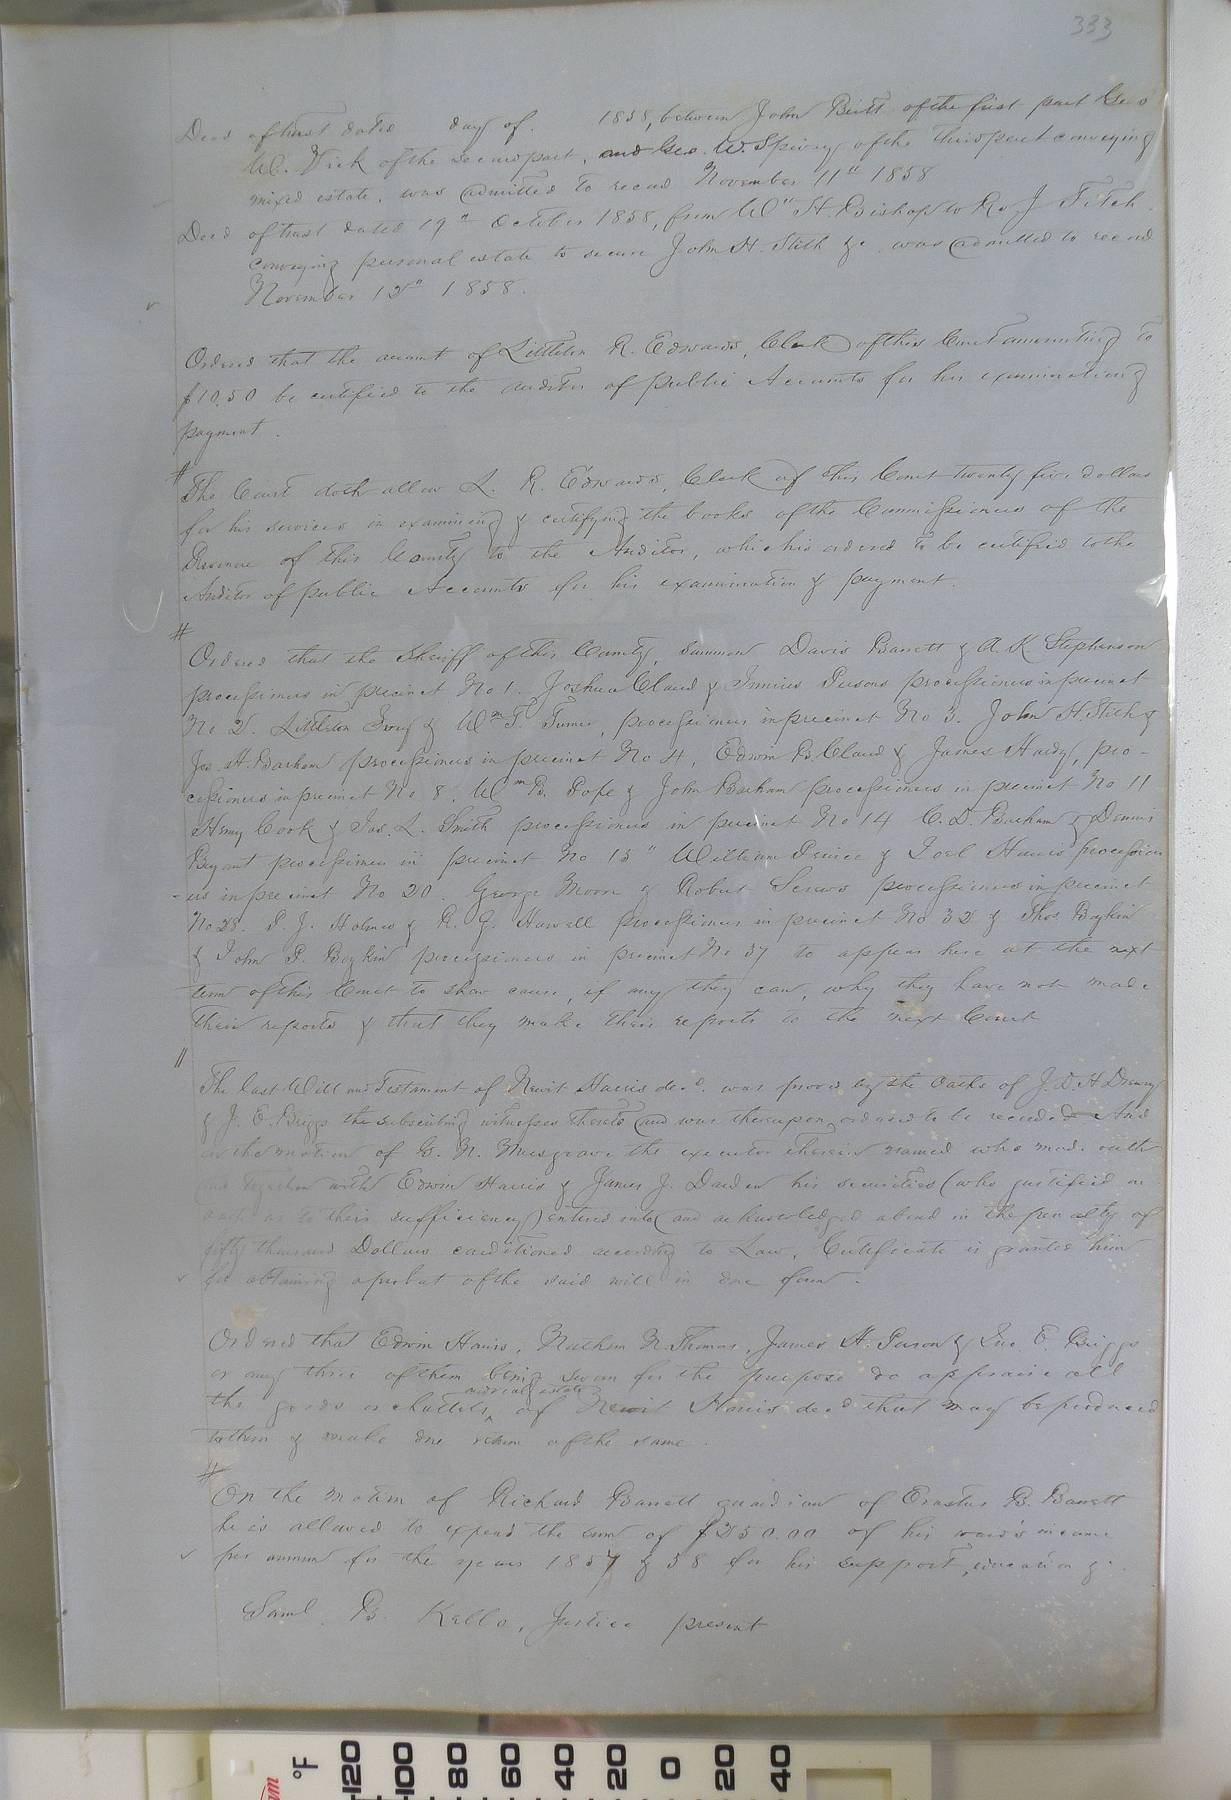 333
Deed of trust dated day of 1858, between John Britt of the first part Geo
W. Vick of the second part, and Geo. W. Spivey of the third part conveying
mixed estate, was admitted to record November 11th 1858
Deed of trust dated 19th October 1858, from Wm H. Bishop to Ro. J Fitch
conveying personal estate to secure John H. Stith &c. was admitted to record
November 12th 1858.
Ordered that the account of Littleton R. Edwards, Clerk of this Court amounting to
$10.50 be certified to the Auditor of public Accounts for his examination &
payment.
#
The Court doth allow L. R. Edwards, Clerk of this Court twenty five dollars
for his services in examining & certifying the books of the Commissioners of the
Revenue of this County to the Auditor, which is ordered to be certified to the
Auditor of public Accounts for his examination & payment.
#
Ordered that the Sheriff of this County, summon Davis Barrett & A. K Stephenson
processioners in precinct No 1. Joshua Claud & Persons processioners in precinct
No 2. Littleton & Wm T. Turner, processioners in precinct No 3. John H. Stith &
Jos. H. Barham processioners in precinct No 4, Edwin B. Claud & James Hardy, pro-
cessioners in precinct No 8. Wm B. Pope & John Barham processioners in precinct No 11
Henry Cook & Jas. L. Smith processioners in precinct No 14 C. D. Barham & Dennis
Bryant processioners in precinct No 15" William Prince & Joel Harris procession
-ers in precinct No 20. George Moore & Robert processioners in precinct
No 28 P. J. Holmes & R. G. Harvell processioners in precinct No 32 & Thos Boykin
& John P. Boykin processioners in precinct No 37 to appear here at the next
term of this Court to show cause, if any they can, why they have not made
their reports & that they make their reports to the next Court
"
The last Will and Testament of Newit Harris decd. was proved by the oaths of J. D. H Drewry
& J. E. Briggs the subscribing witnesses thereto and was thereupon ordered to be recorded And
on the motion of G. N. Musgrave the executor therein named who made oath
and together with Edwin Harris & James J. Darden his securities (who justified on
oath as to their sufficiency) entered into and acknowledged a bond in the penalty of
fifty thousand Dollars conditioned according to Law, Certificate is granted him
for obtaining a probat of the said will in due form.
Ordered that Edwin Harris, Nathan N. Thomas, James H. Person & Jno E. Briggs
or any three of them being sworn for the purpose do appraise all
and real estate
the goods or chattels, of Newit Harris decd that may be produced
to them & make due return of the same.
#
On the motion of Richard Barrett guardian of Erastus B. Barrett
he is allowed to expend the sum of $250.00 of his ward's income
per annum for the years 1857 & 58 for his support, education &c.
Saml. B. Kello, Justice present
°F
120
100
80
60
40
20
0
20
40